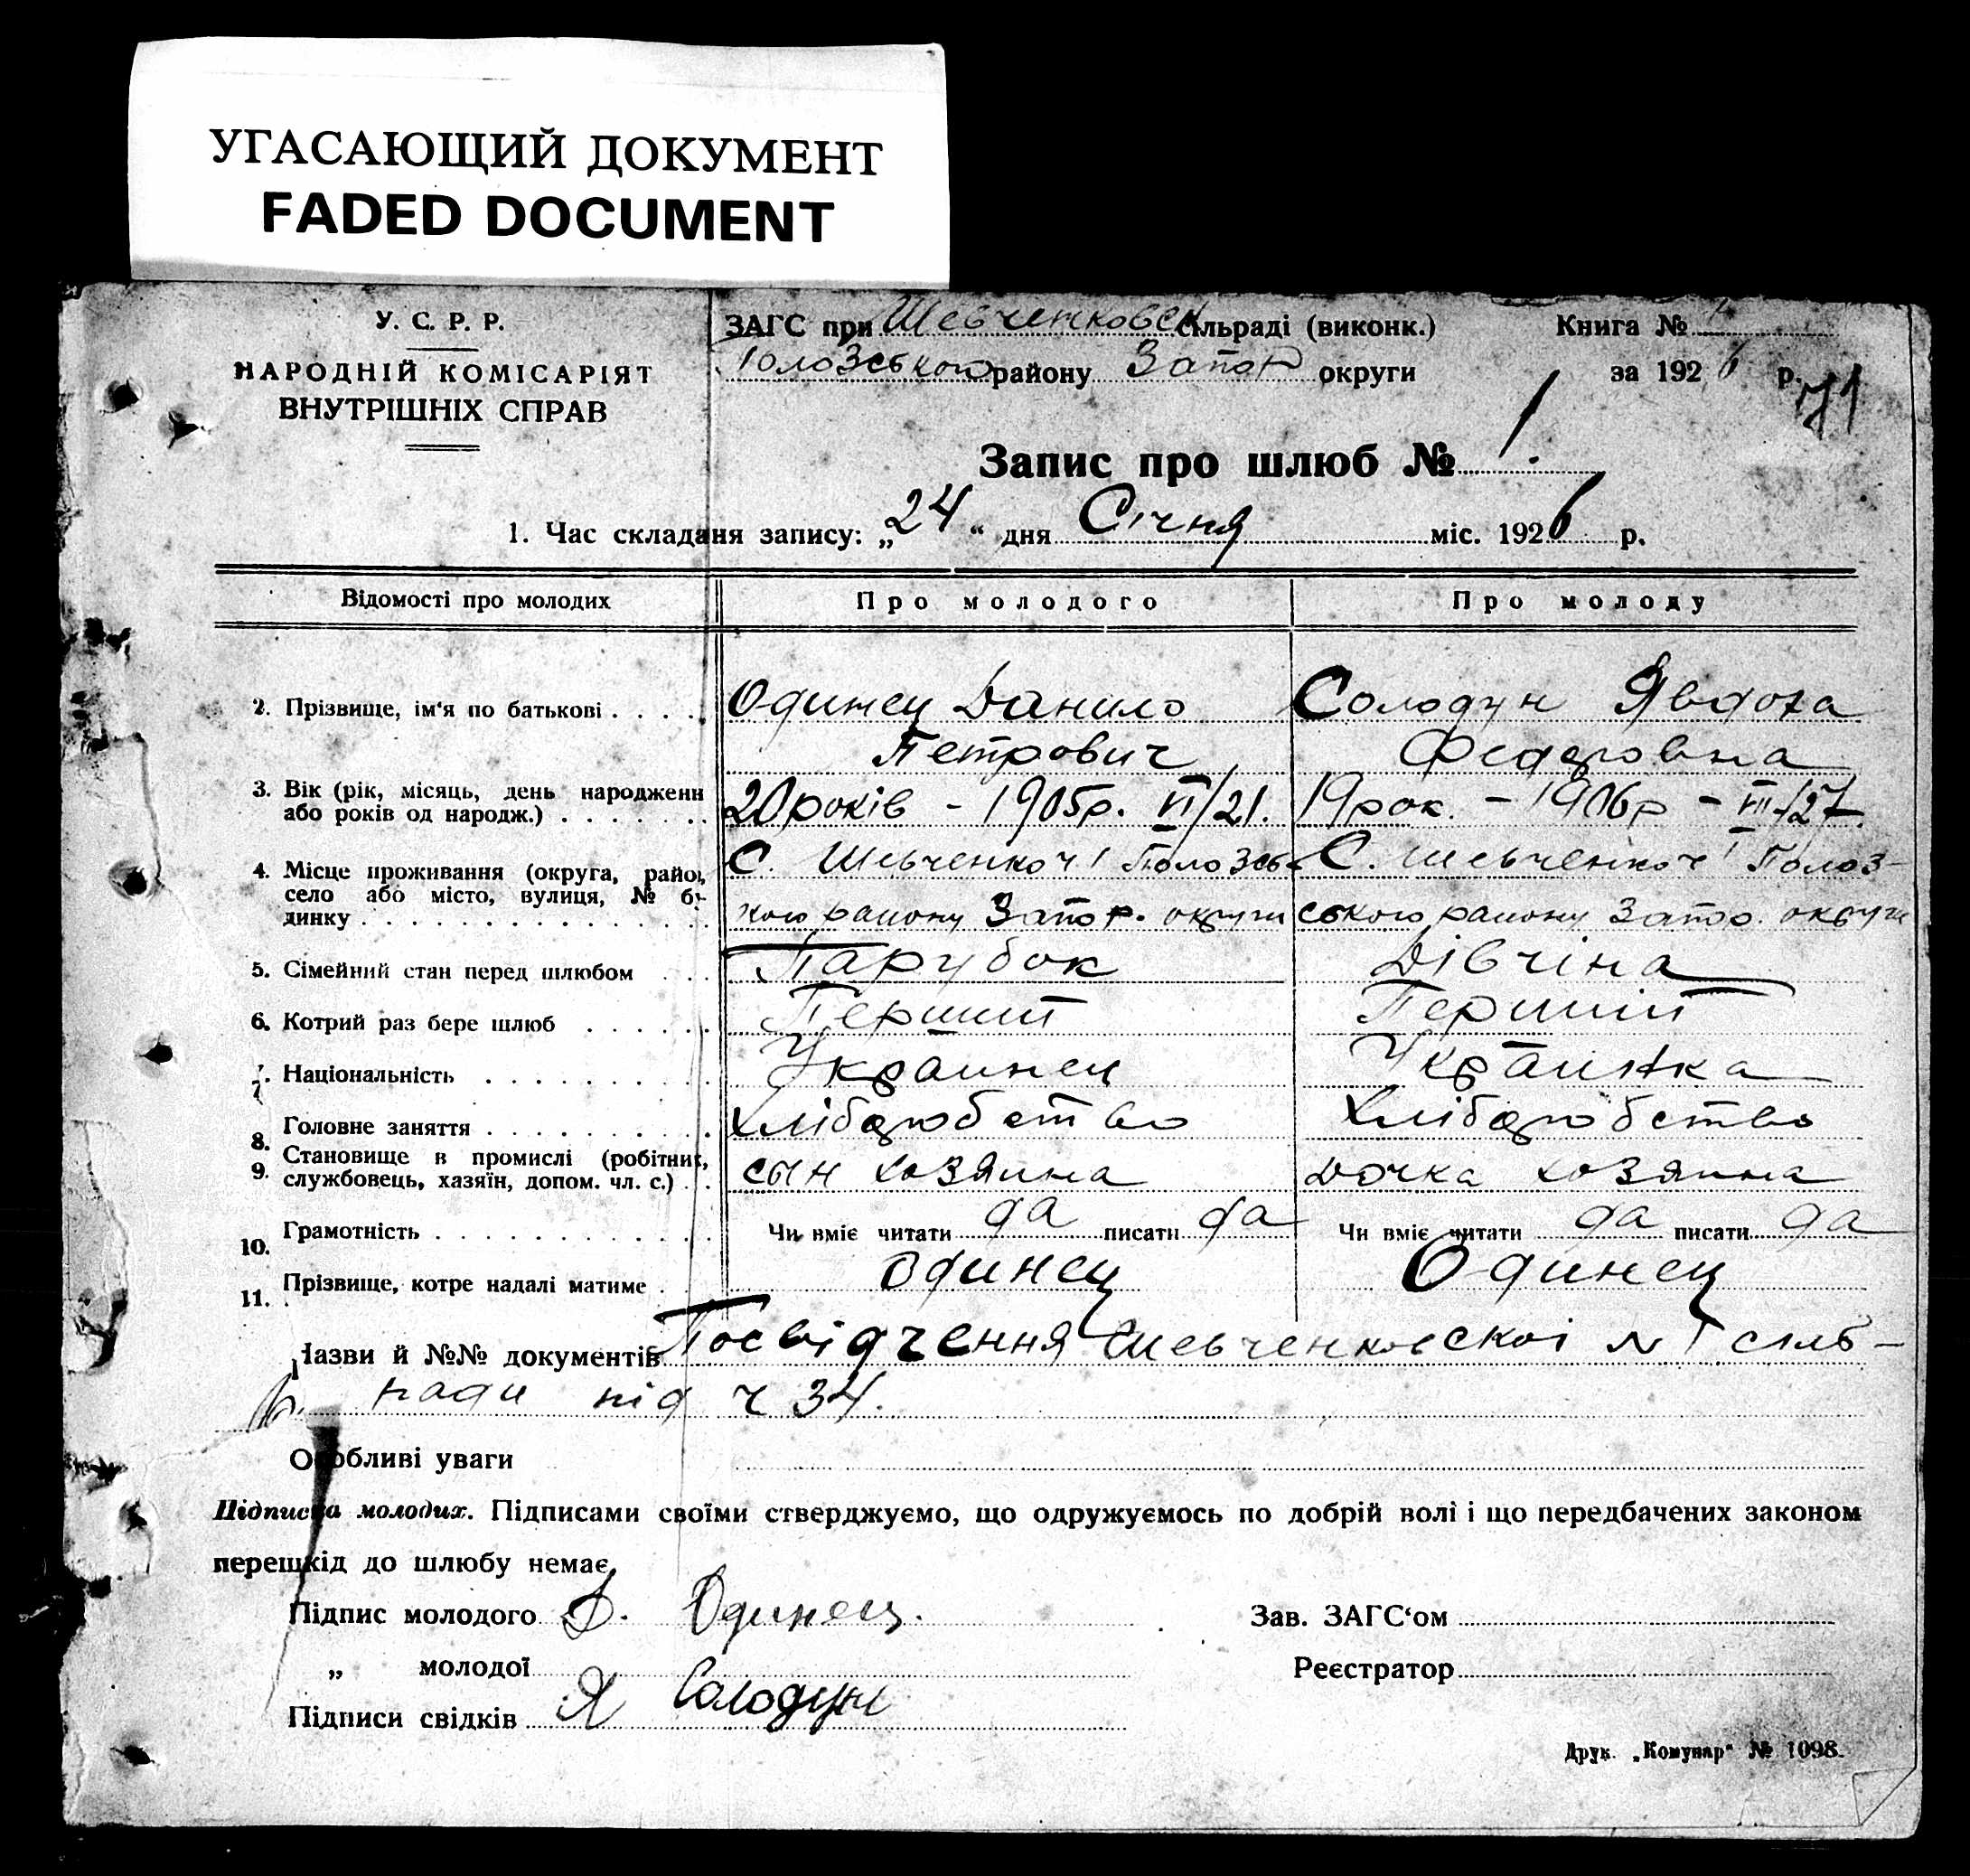 УГАСАЮЩИЙ ДОКУМЕНТ
FADED DOCUMENT
У. С. Р. Р.
НАРОДНІЙ КОМІСАРІЯТ
ВНУТРІШНІХ СПРАВ
ЗАГС при Шевченковск сільраді (виконк.) Книга №
Полозського району Запор округи за 1926 р.
71
Запис про шлюб № 1.
1. Час складаня запису: „24“ дня Січня міс. 1926 р.
Відомості про молодих Про молодого Про молоду
2. Прізвище, ім'я по батькові Одинец Данило Солодун Явдоха
Петрович Федоровна
3. Вік (рік, місяць, день народження 20 років - 1905р. VI/21. 19 рок. - 1906р - VII/27.
або років од народж.)
4. Місце проживання (округа, район, С. Шевченко ч1 Полозсь- С. Шевченко ч1 Полоз-
село або місто, вулиця, № бу-
динку кого району Запор. округи ського району Запор. округи
5. Сімейний стан перед шлюбом Парубок Дівчіна
6. Котрий раз бере шлюб Перший Перший
7. Національність Украинец Украинка
8. Головне заняття Хліборобство Хліборобство
9. Становище в промислі (робітник, сын хозяина дочка хозяина
службовець, хазяїн, допом. чл. с.)
10. Грамотність Чи вміє читати да писати да Чи вміє читати да писати да
11. Прізвище, котре надалі матиме Одинец Одинец
Назви й №№ документів Посвідчення Шевченковскоі №1 сіль-
ради під ч 34.
Особливі уваги
Підписка молодих. Підписами своїми стверджуємо, що одружуємось по добрій волі і що передбачених законом
перешкід до шлюбу немає,
Підпис молодого Д. Одинец. Зав. ЗАГС'ом
„ молодої Реєстратор
Підписи свідків Я Солодун
Друк. „Комунар“ № 1098.